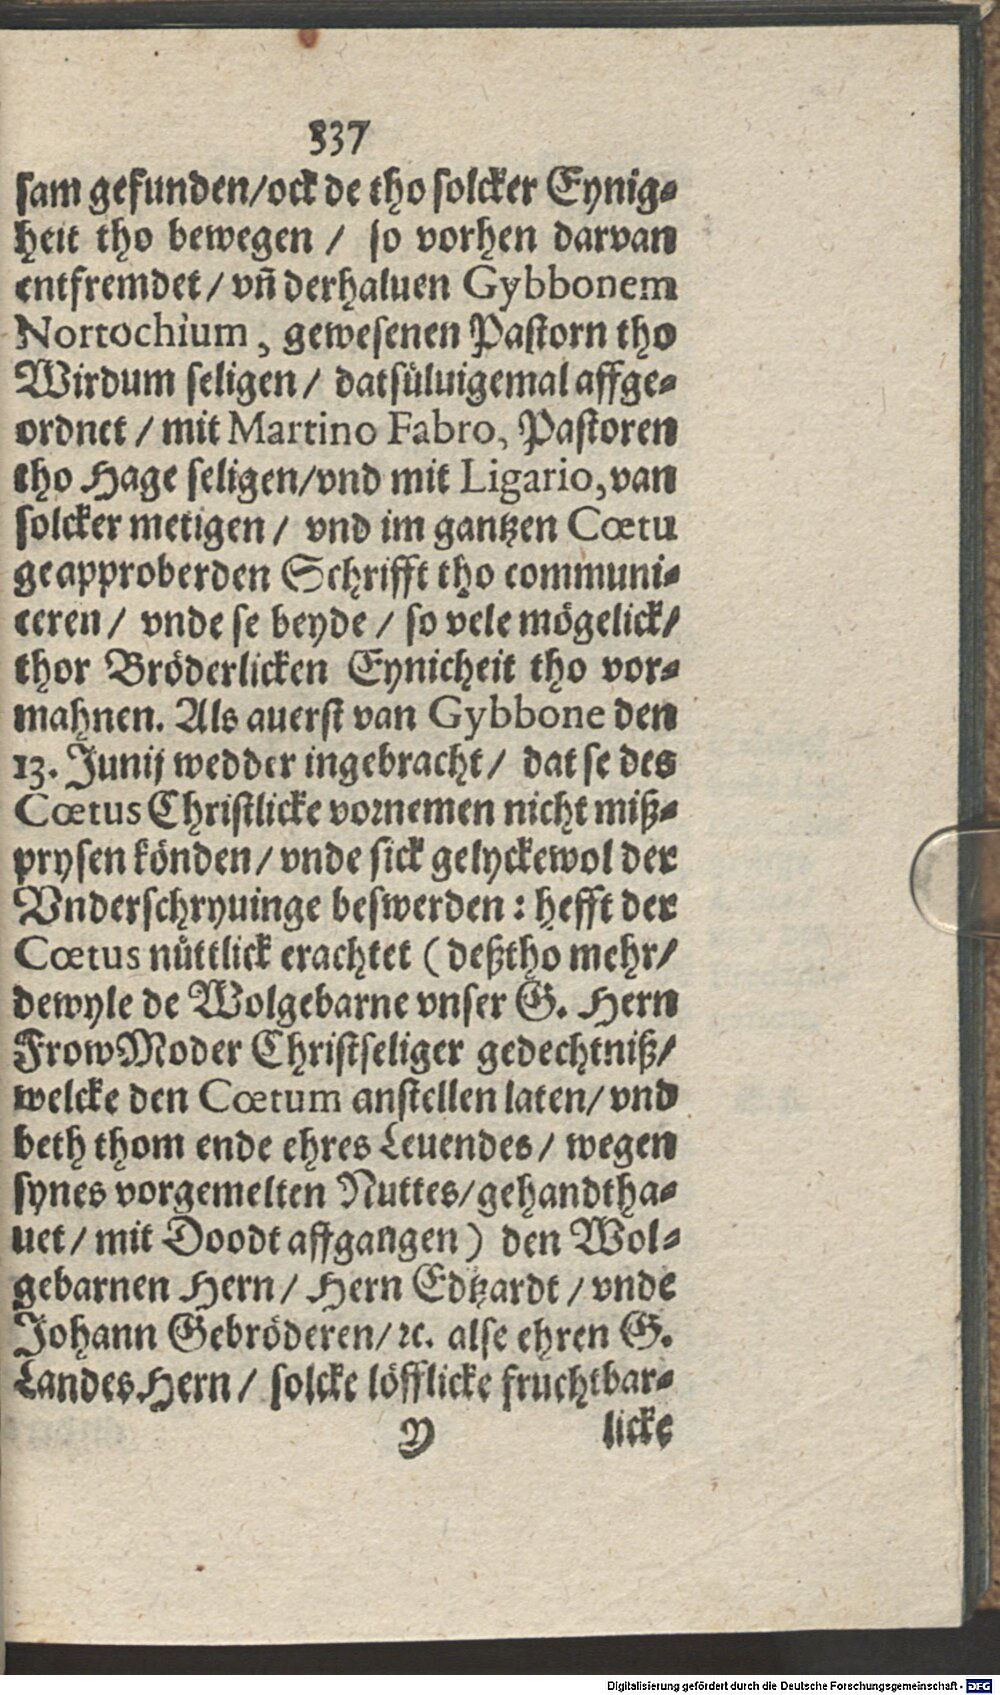 337
sam gefunden/ock de tho solcker Eynig-
heit tho bewegen / so vorhen darvan
entfremdet / vñ derhaluen Gybbonem
Nortochium, gewesenen Pastorn tho
Wirdum seligen / datsüluigemal affge-
ordnet / mit Martino Fabro, Pastoren
tho Hage seligen/vnd mit Ligario, van
solcker metigen / vnd im gantzen Cœtu
geapproberden Schrifft tho communi-
ceren / vnde se beyde / so vele mögelick/
thor Bröderlicken Eynicheit tho vor-
mahnen. Als auerst van Gybbone den
13. Junij wedder ingebracht / dat se des
Cœtus Christlicke vornemen nicht miß-
prysen könden / vnde sick gelyckewol der
Vnderschryuinge beswerden : hefft der
Cœtus nüttlick erachtet ( deßtho mehr/
dewyle de Wolgebarne vnser G. Hern
Frow Moder Christseliger gedechtniß/
welcke den Cœtum anstellen laten/ vnd
beth thom ende ehres Leuendes / wegen
synes vorgemelten Nuttes/gehandtha-
uet / mit Doodt affgangen ) den Wol-
gebarnen Hern / Hern Edtzardt / vnde
Johann Gebröderen/ ꝛc. alse ehren G.
Landes Hern / solcke löfflicke fruchtbar-
Y licke
Digitalisierung gefördert durch die Deutsche Forschungsgemeinschaft - DFG